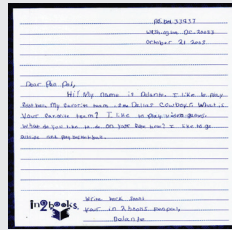 P.O. Box 33937
Washington DC. 20033
October 21 2003
Dear Pen Pal,
Hi! My name is Delante. I like to play
football. My favorite team is the Dallas Cowboys. What is
your favorite team? I like to play video games.
What do you like to do on your free time? I like to go
outside and play basketball.
Write back soon!
In2Books.
your in 2 books penpal,
Delante